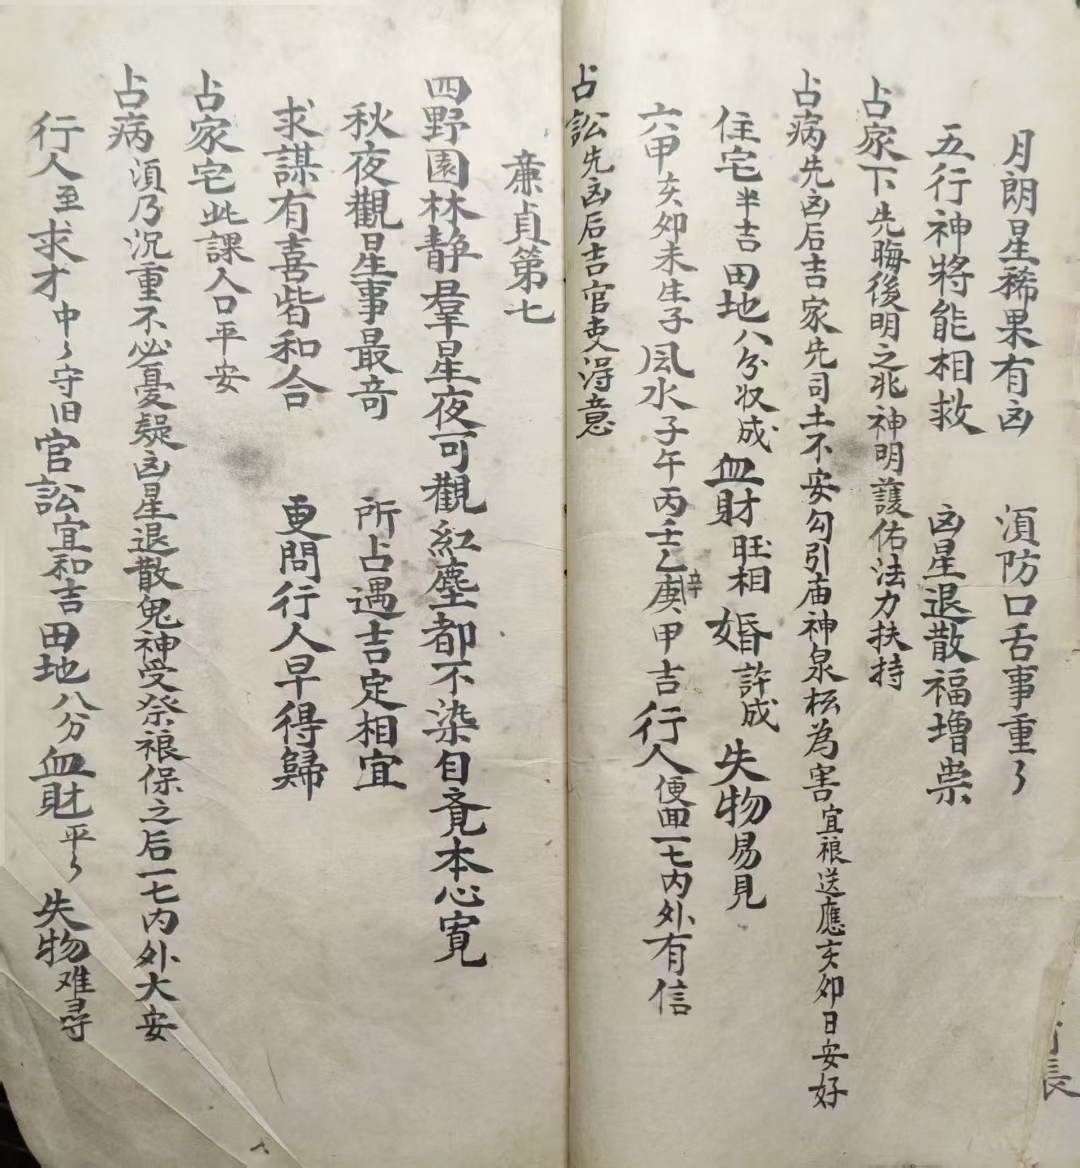 月朗星稀果有凶 湏防口舌事重〻
五行神將能相救 凶星退散福增崇
占家下先晦後明之兆神明護佑法力扶持
占病先凶后吉家先司土不安勾引庙神泉枩為害宜禳送應亥卯日安好
住宅半吉田地八分収成血財旺相婚許成失物易見
六甲亥卯未生子風水子午丙壬乙辛庚甲吉行人便回一七内外有信
占訟先凶后吉官吏淂意
亷貞第七
四野園林静羣星夜可觀紅塵都不染自覔本心寛
秋夜觀星事最竒 所占遇吉定相宜
求謀有喜皆和合 更問行人早得歸
占家宅此課人口平安
占病湏乃沉重不必憂疑凶星退散鬼神受祭禳保之后一七内外大安
行人至求才中〻守旧官訟宜和吉田地八分血財平〻失物难尋
長